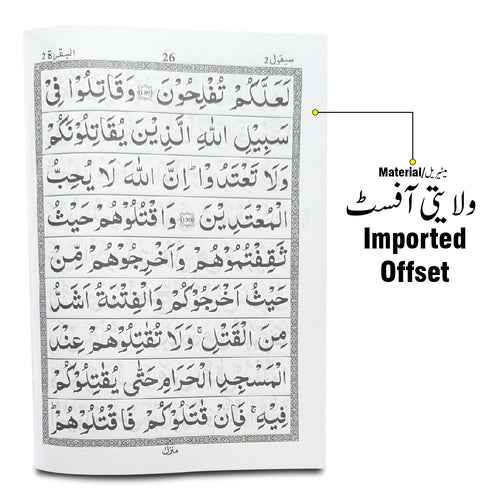 البقرة ٢
26
سيقول ٢
لَعَلَّكُمْ تُفْلِحُوْنَ ﴿189﴾ وَقَاتِلُوْا فِيْ
سَبِيْلِ اللّٰهِ الَّذِيْنَ يُقَاتِلُوْنَكُمْ
وَلَا تَعْتَدُوْا ؕ اِنَّ اللّٰهَ لَا يُحِبُّ
الْمُعْتَدِيْنَ ﴿190﴾ وَاقْتُلُوْهُمْ حَيْثُ
ثَقِفْتُمُوْهُمْ وَاَخْرِجُوْهُمْ مِّنْ
حَيْثُ اَخْرَجُوْكُمْ وَالْفِتْنَةُ اَشَدُّ
مِنَ الْقَتْلِ ۚ وَلَا تُقٰتِلُوْهُمْ عِنْدَ
الْمَسْجِدِ الْحَرَامِ حَتّٰى يُقٰتِلُوْكُمْ
فِيْهِ ۚ فَاِنْ قٰتَلُوْكُمْ فَاقْتُلُوْهُمْ ؕ
منزل
Material/میٹیریل
ولایتی آفسٹ
Imported
Offset